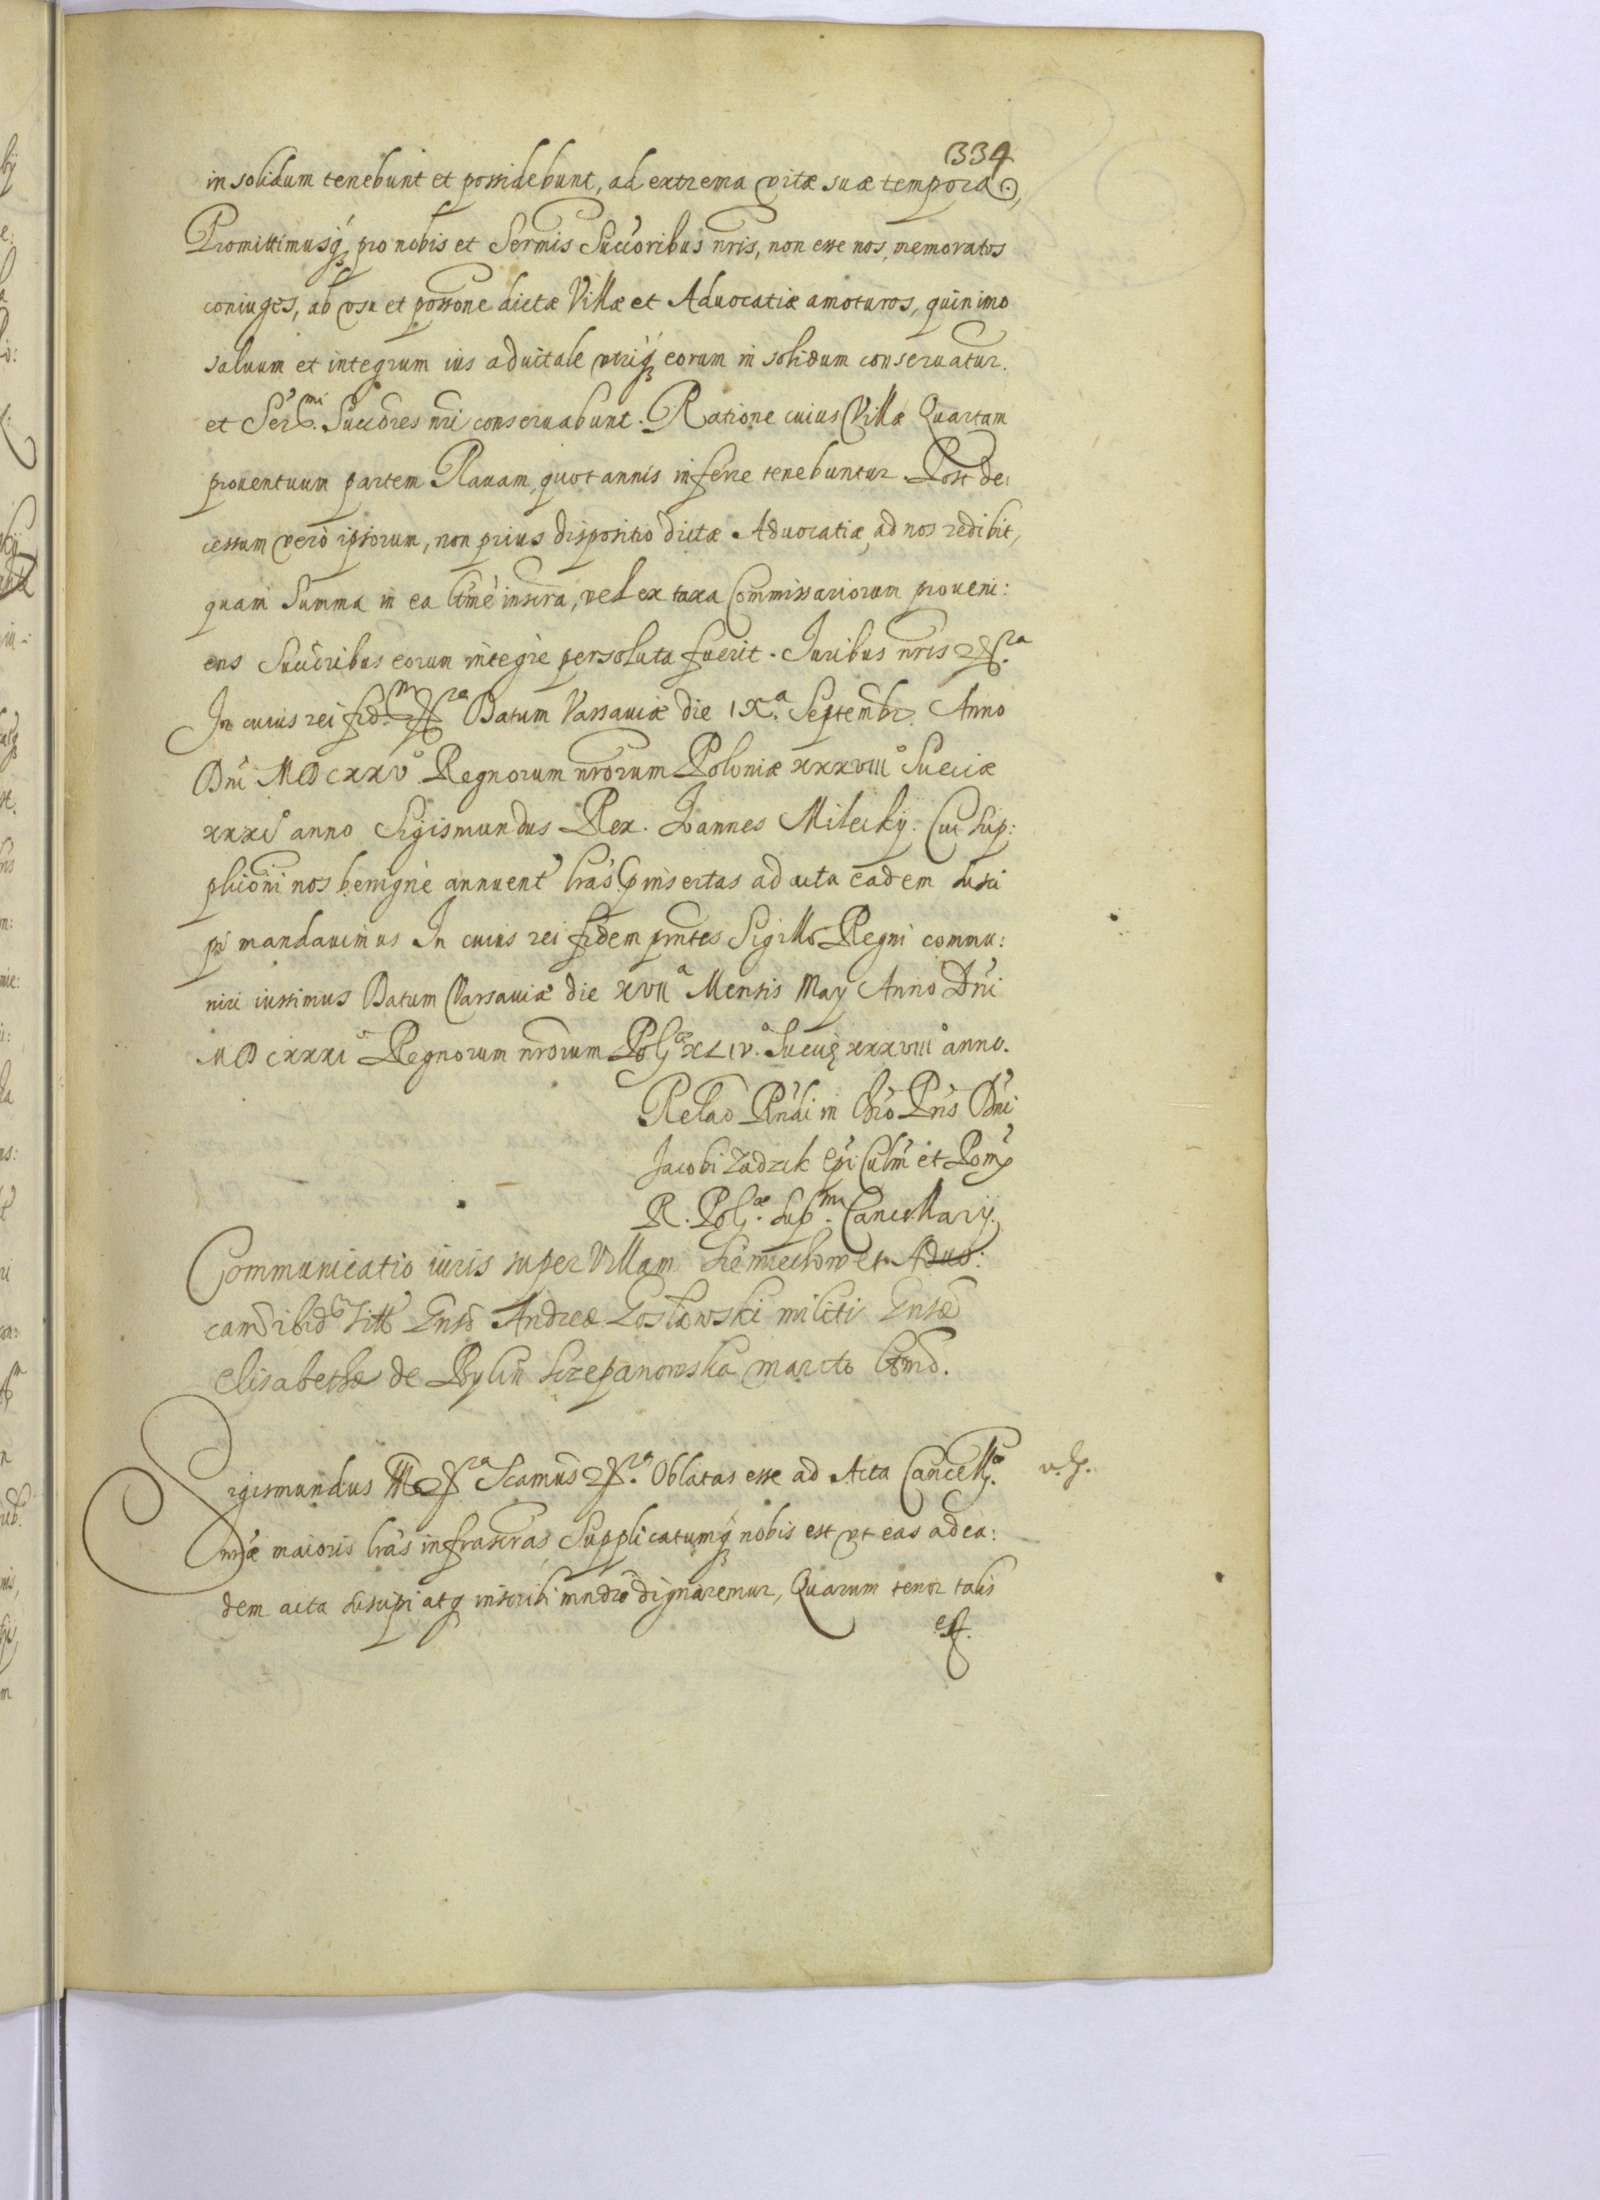 334
in solidum tenebunt et possidebunt, ad extrema vitæ suæ tempora.
Promittimusq́ pro nobis et Sermis Succoribus nris, non esse nos memoratos
coniuges, ab vsu et possone dictæ Villæ et Aduocatiæ amoturos, quinimo
saluum et integrum ius aduitale vtriq́ eorum in solidum conseruatur.
et Ser.mi Succores nri conseruabunt. Ratione cuius Villæ Quartam
prouentuum partem Rauam quotannis inferre tenebuntur. Post de:
cessum verò ipsorum, non prius dispositio dictæ Aduocatiæ, ad nos redibit,
quam Summa in ea ltmè inscra, vel ex taxa Commissariorum proueni:
ens Succoribus eorum integrè persoluta fuerit. Iuribus nris &ra
In cuius rei fid.m &ra Datum Varsauiæ die IXa. Septembr. Anno
Dni MDCXXVo Regnorum nrorum Poloniæ XXXVIIIo Sueciæ
XXXIIo anno Sigismundus Rex. Ioannes Milecky. Cui Sup:
plicõni nos benignè annuent lras pinsertas ad acta eadem susci
pi mandauimus In cuius rei fidem pntes Sigillo Regni commu:
niri iussimus Datum Varsauiæ die XVIIa Mensis May Anno Dni
MDCXXXIo Regnorum nrorum Pol.æ XLIVo. Sueciæ XXXVIIIo anno.
Relao Rndi in Chro Pris Dni
Jacobi Zadzik Epi Culm et Pom
R. Pol.æ Sup.mi Cancellarij.
Communicatio iuris super Villam Siemiechow et Aduo:
cam ibid Titt Gnso Andreæ Kosłowski militi Gnsæ
Elisabethæ de Bylin Szczepanowska marito
Sigismundus III &ra Scamus &ra. Oblatas esse ad Acta Cancell. v. s.
nræ maioris lras infrascras Supplicatumq́ nobis est vt eas ad ea:
dem acta suscipi atq inscribi mndre dignaremur, Quarum tenor talis
est.